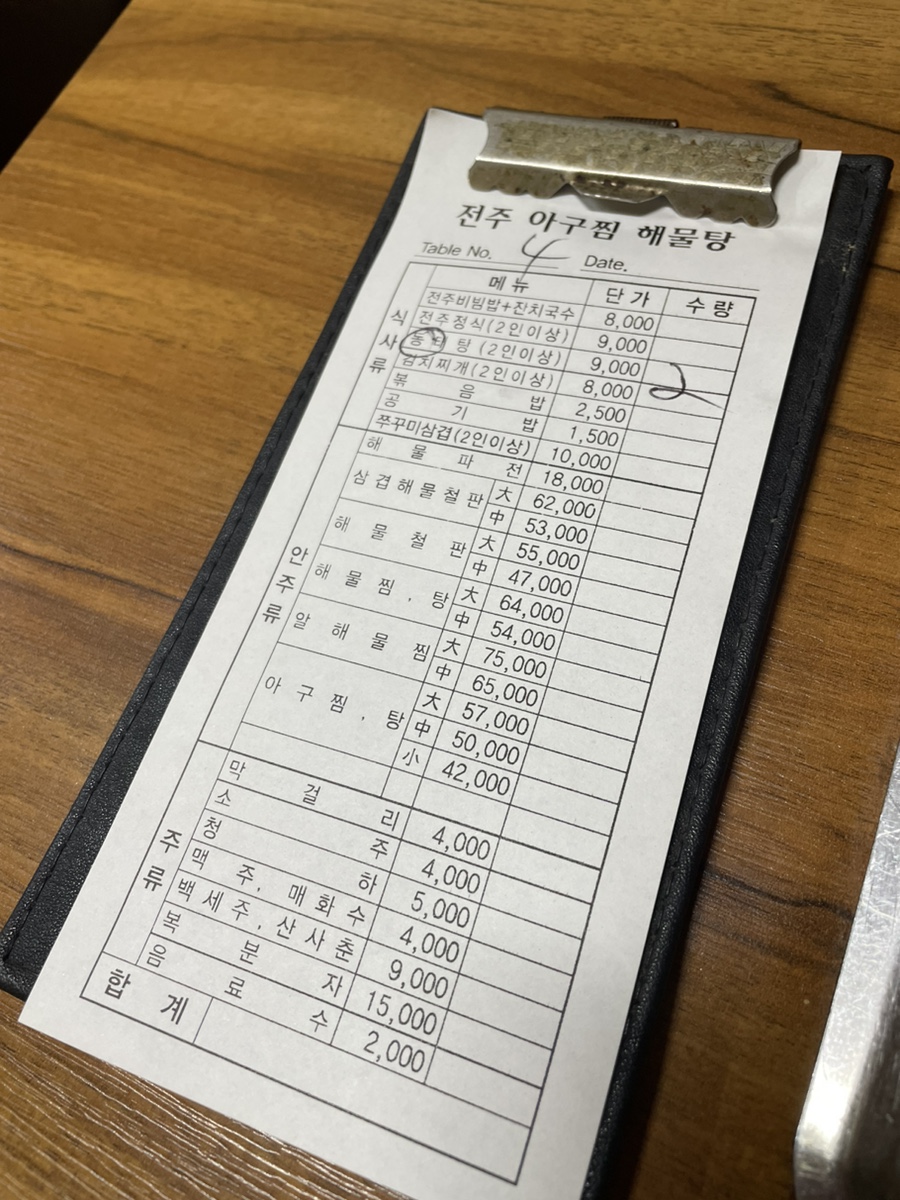 전주 아구찜 해물탕
Table No. 4 Date.
메뉴 단가 수량
식사류
전주비빔밥+잔치국수 8,000
전주정식(2인이상) 9,000
탕 (2인이상) 9,000 2
김치찌개(2인이상) 8,000
볶음밥 2,500
공기밥 1,500
쭈꾸미삼겹(2인이상) 10,000
안주류
해물파전 18,000
삼겹해물철판 大 62,000
中 53,000
해물철판 大 55,000
中 47,000
해물찜, 탕 大 64,000
中 54,000
알해물찜 大 75,000
中 65,000
아구찜, 탕 大 57,000
中 50,000
小 42,000
주류
막걸리 4,000
소주 4,000
청하 5,000
맥주, 매화수 4,000
백세주, 산사춘 9,000
복분자 15,000
음료수 2,000
합계